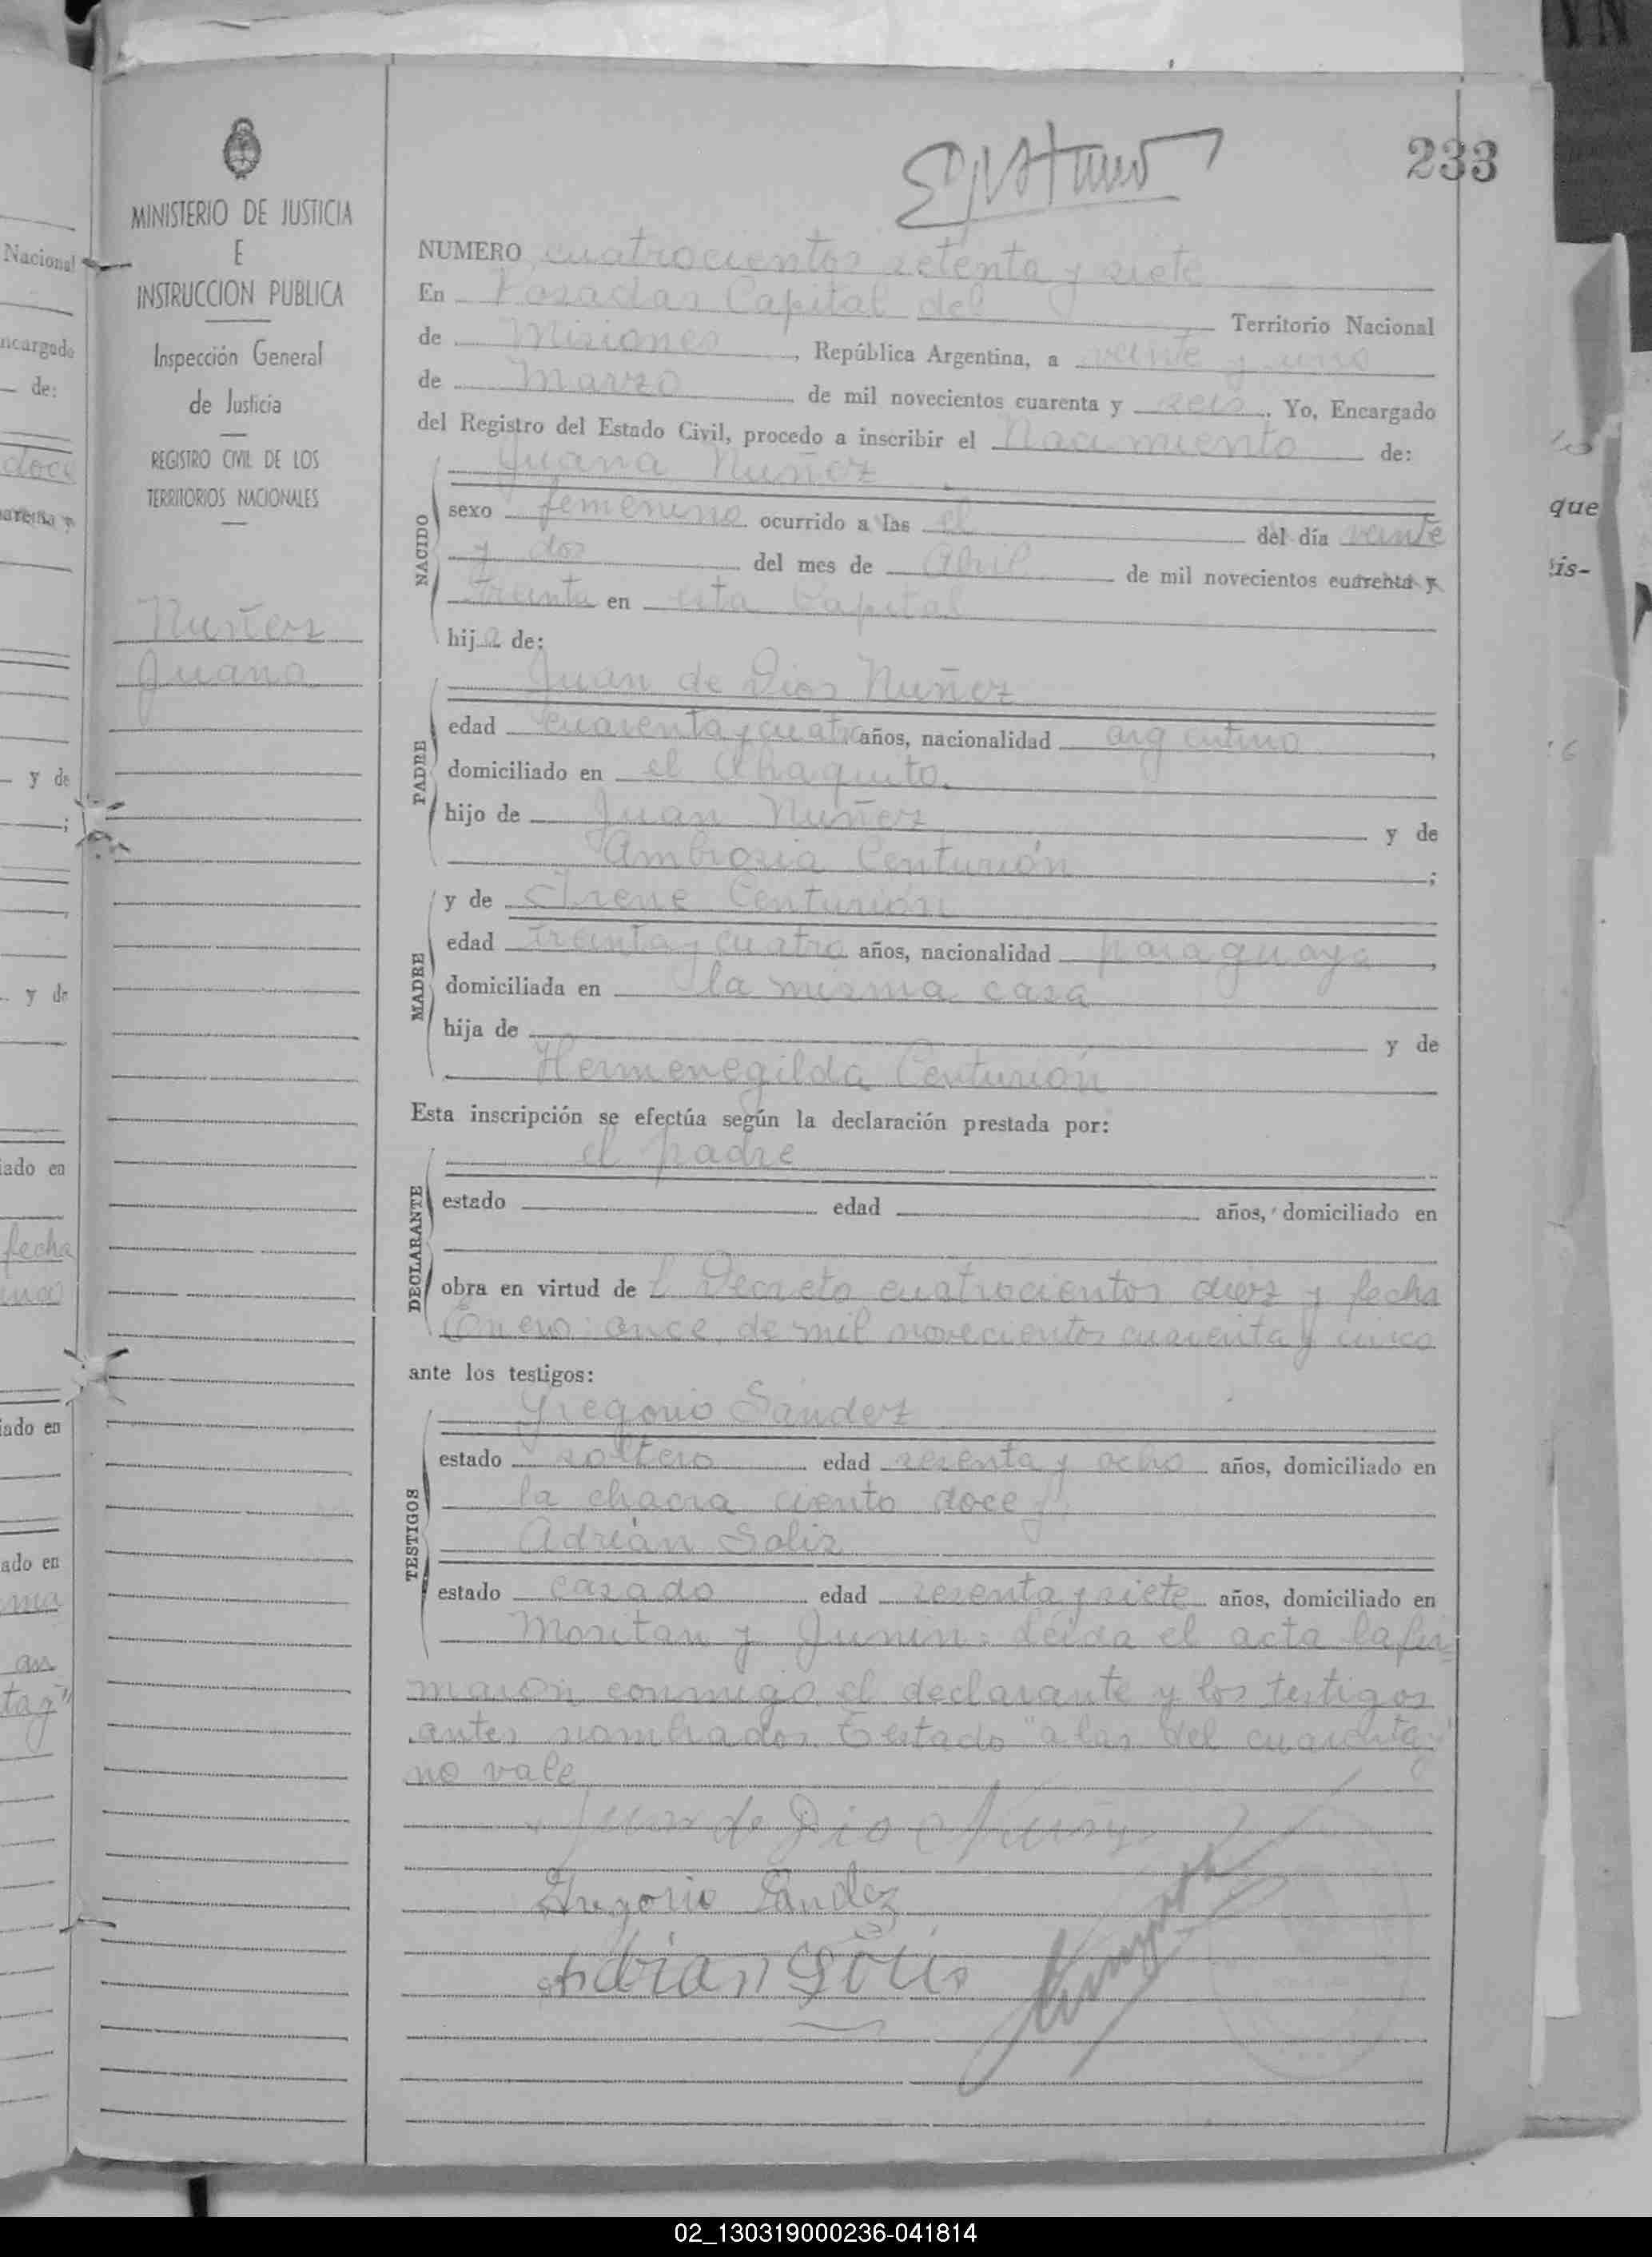 233
MINISTERIO DE JUSTICIA
E
INSTRUCCION PUBLICA
Inspección General
de Justicia
REGISTRO CIVIL DE LOS
TERRITORIOS NACIONALES
Nuñez
Juana
NUMERO cuatrocientos setenta y siete
En Posadas Capital del Territorio Nacional
de Misiones, República Argentina, a veinte y uno
de Marzo de mil novecientos cuarenta y seis. Yo, Encargado
del Registro del Estado Civil, procedo a inscribir el Nacimiento de:
NACIDO
Juana Nuñez
sexo femenino ocurrido a las el del día veinte
y dos del mes de Abril de mil novecientos cuarenta y
treinta en esta Capital
hija de:
PADRE
Juan de Dios Nuñez
edad cuarenta y cuatro años, nacionalidad argentino,
domiciliado en el Chaquito.
hijo de Juan Nuñez y de
Ambrosia Centurión;
MADRE
y de Irene Centurión
edad treinta y cuatro años, nacionalidad paraguaya,
domiciliada en la misma casa
hija de y de
Hermenegilda Centurión
Esta inscripción se efectúa según la declaración prestada por:
DECLARANTE
el padre
estado edad años, domiciliado en
obra en virtud de Decreto cuatrocientos diez y fecha
Enero once de mil novecientos cuarenta y cinco
ante los testigos:
TESTIGOS
Gregorio Sandez
estado soltero edad sesenta y ocho años, domiciliado en
la chacra ciento doce y
Adrián Solis
estado casado edad sesenta y siete años, domiciliado en
Moritan y Junin: Leida el acta la fir
maron conmigo el declarante y los testigos
antes nombrados. Testado "a las del cuarenta y"
no vale
Juan de Dio Nuñez
Gregorio Sandez
Adrian Solis
02_130319000236-041814